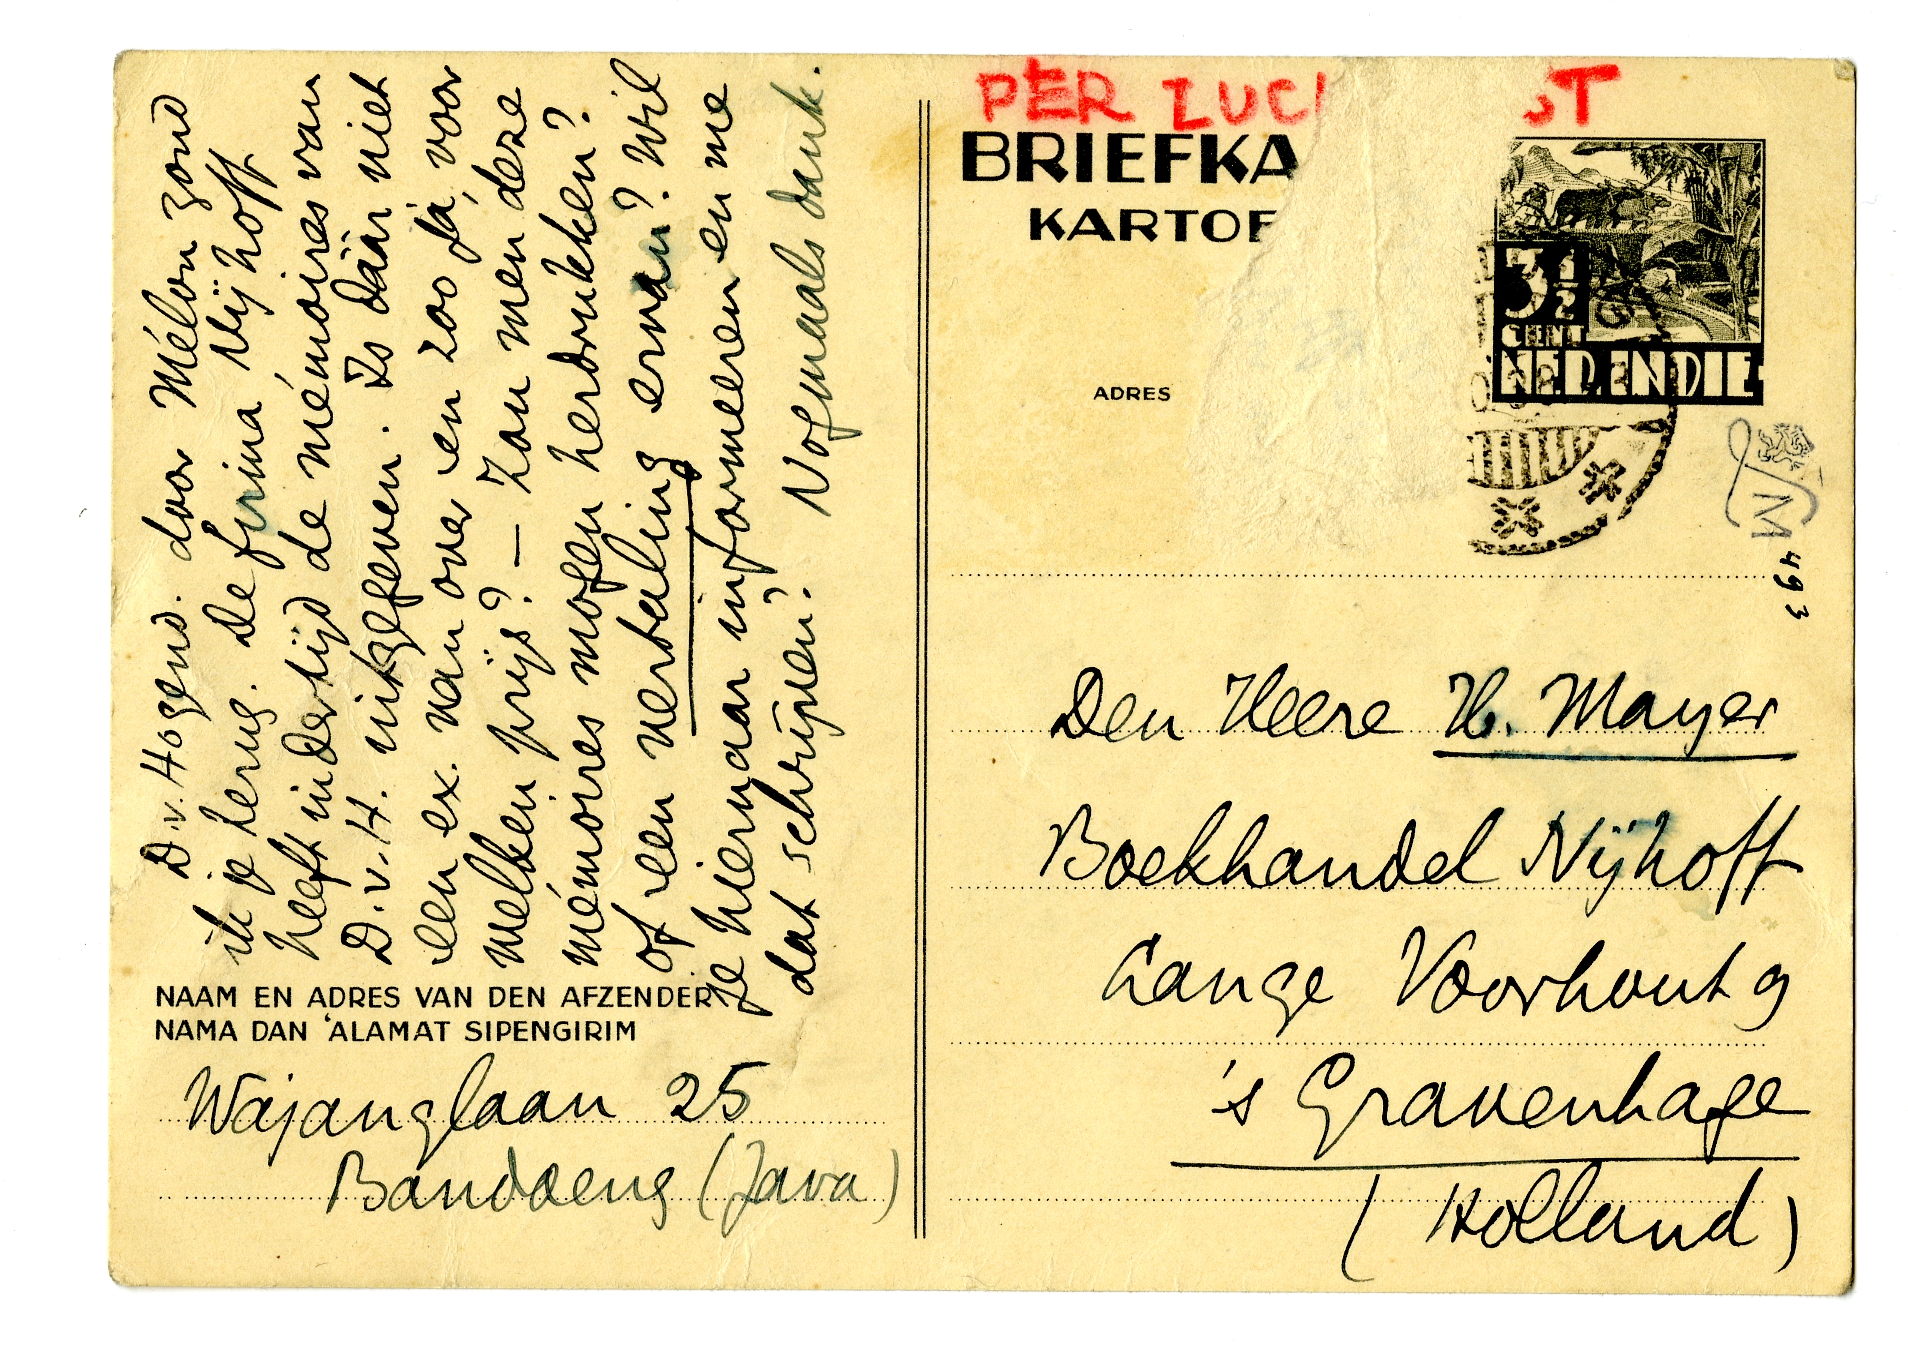 D.v. Hogend. door Mélon zond
ik je terug. De firma Nijhoff
heeft indertijd de mémoires van
D.v.H. uitgegeven. Is däär niet
een ex. van over en zoo ja, voor
welken prijs? — Zou men deze
mémoires mogen herdrukken?
of een vertaling ervan? Wil
je hiernaar informeeren en me
dat schrijven? Nogmaals dank.
NAAM EN ADRES VAN DEN AFZENDER
NAMA DAN 'ALAMAT SIPENGIRIM
Wajanglaan 25
Bandoeng (Java)
PER LUC ST
BRIEFKA
KARTOE
3½
CENT
NED. INDIE
ADRES
M
493
Den Heere H. Mayer
Boekhandel Nijhoff
Lange Voorhout 9
's Gravenhage
(Holland)